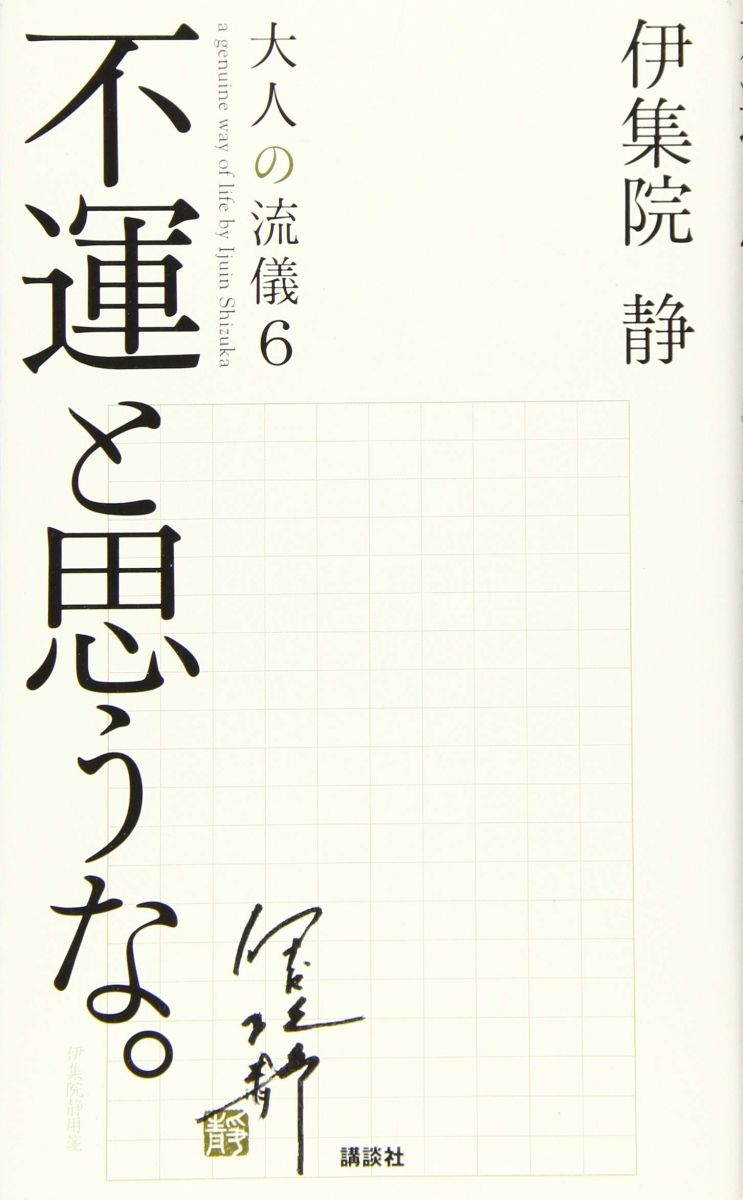 伊集院 静
大人の流儀6
a genuine way of life by Ijuin Shizuka
不運と思うな。
伊集院静用箋
静
講談社